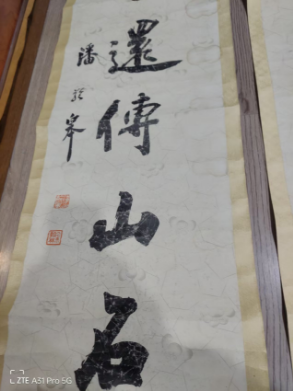 還傳山石
潘龄皋
ZTE A31 Pro 5G